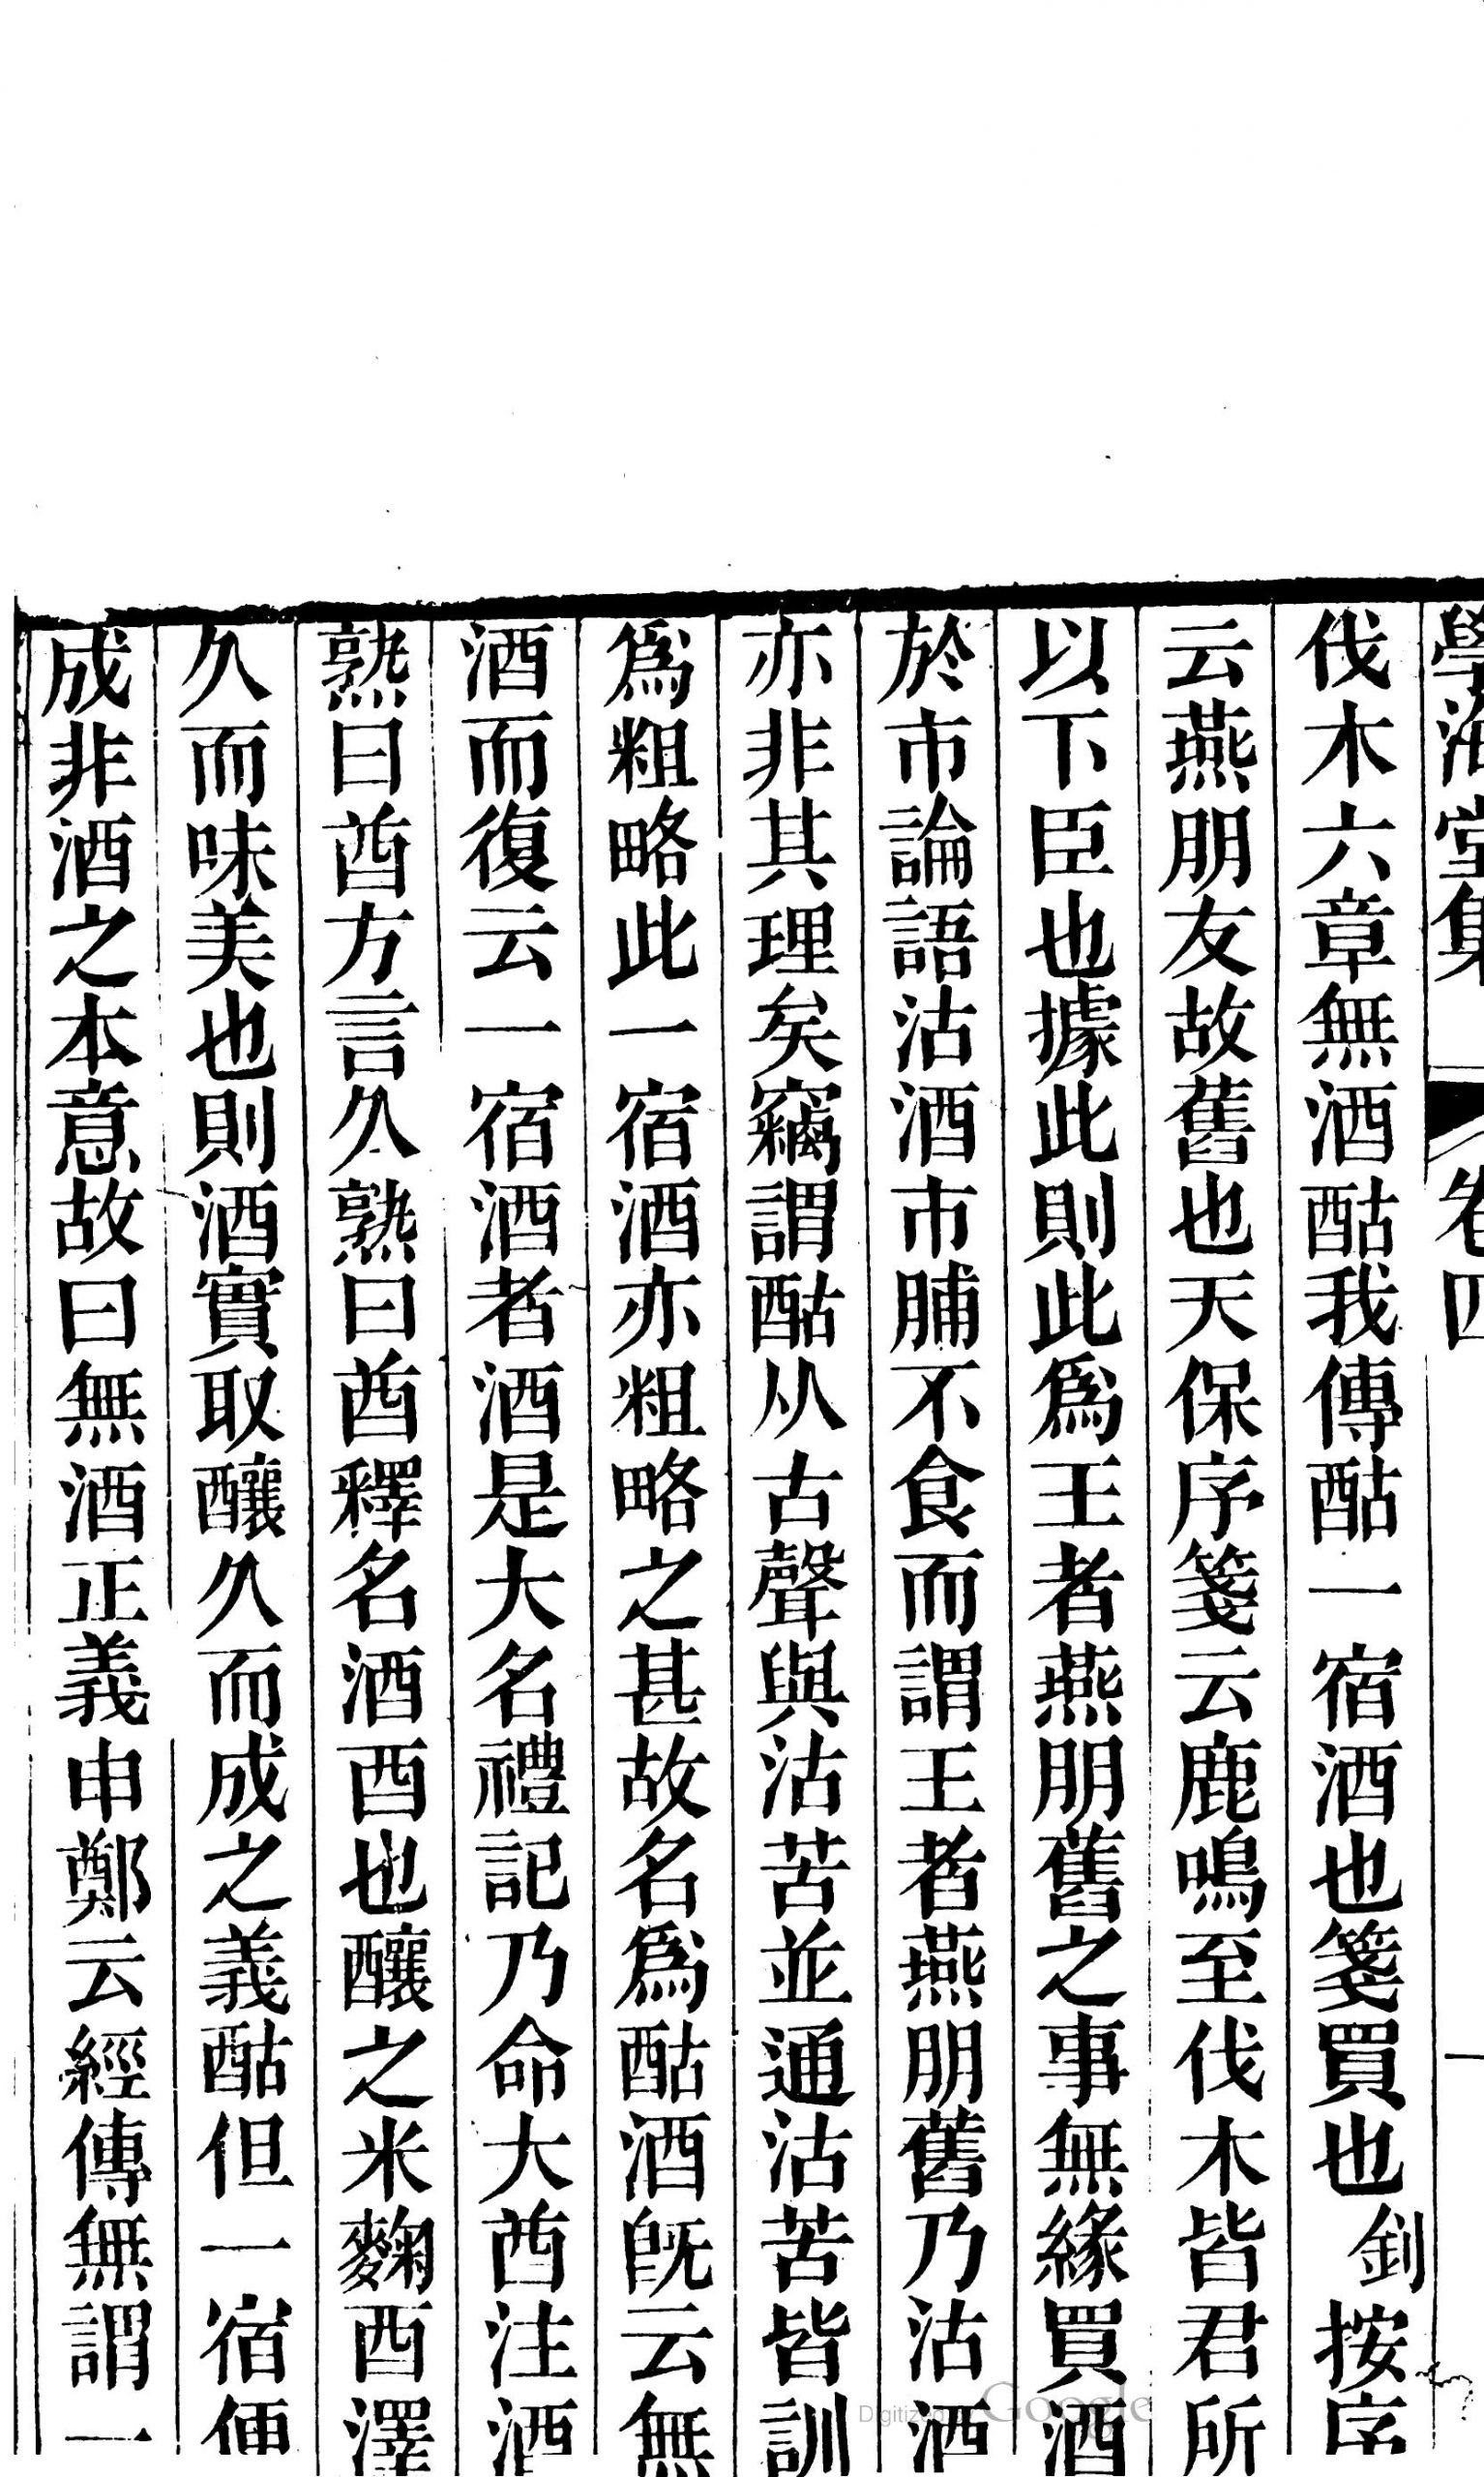 學海堂集 卷四 一
伐木六章無酒酤我傳酤一宿酒也箋買也釗按序
云燕朋友故舊也天保序箋云鹿鳴至伐木皆君所
以下臣也據此則此爲王者燕朋舊之事無緣買酒
於市論語沽酒市脯不食而謂王者燕朋舊乃沽酒
亦非其理矣竊謂酤从古聲與沽苦並通沽苦皆訓
爲粗略此一宿酒亦粗略之甚故名爲酤酒旣云無
酒而復云一宿酒者酒是大名禮記乃命大酋注酒
熟曰酋方言久熟曰酋釋名酒酉也釀之米麴酉澤
久而味美也則酒實取釀久而成之義酤但一宿便
成非酒之本意故曰無酒正義申鄭云經傳無謂一
Digitized by Google